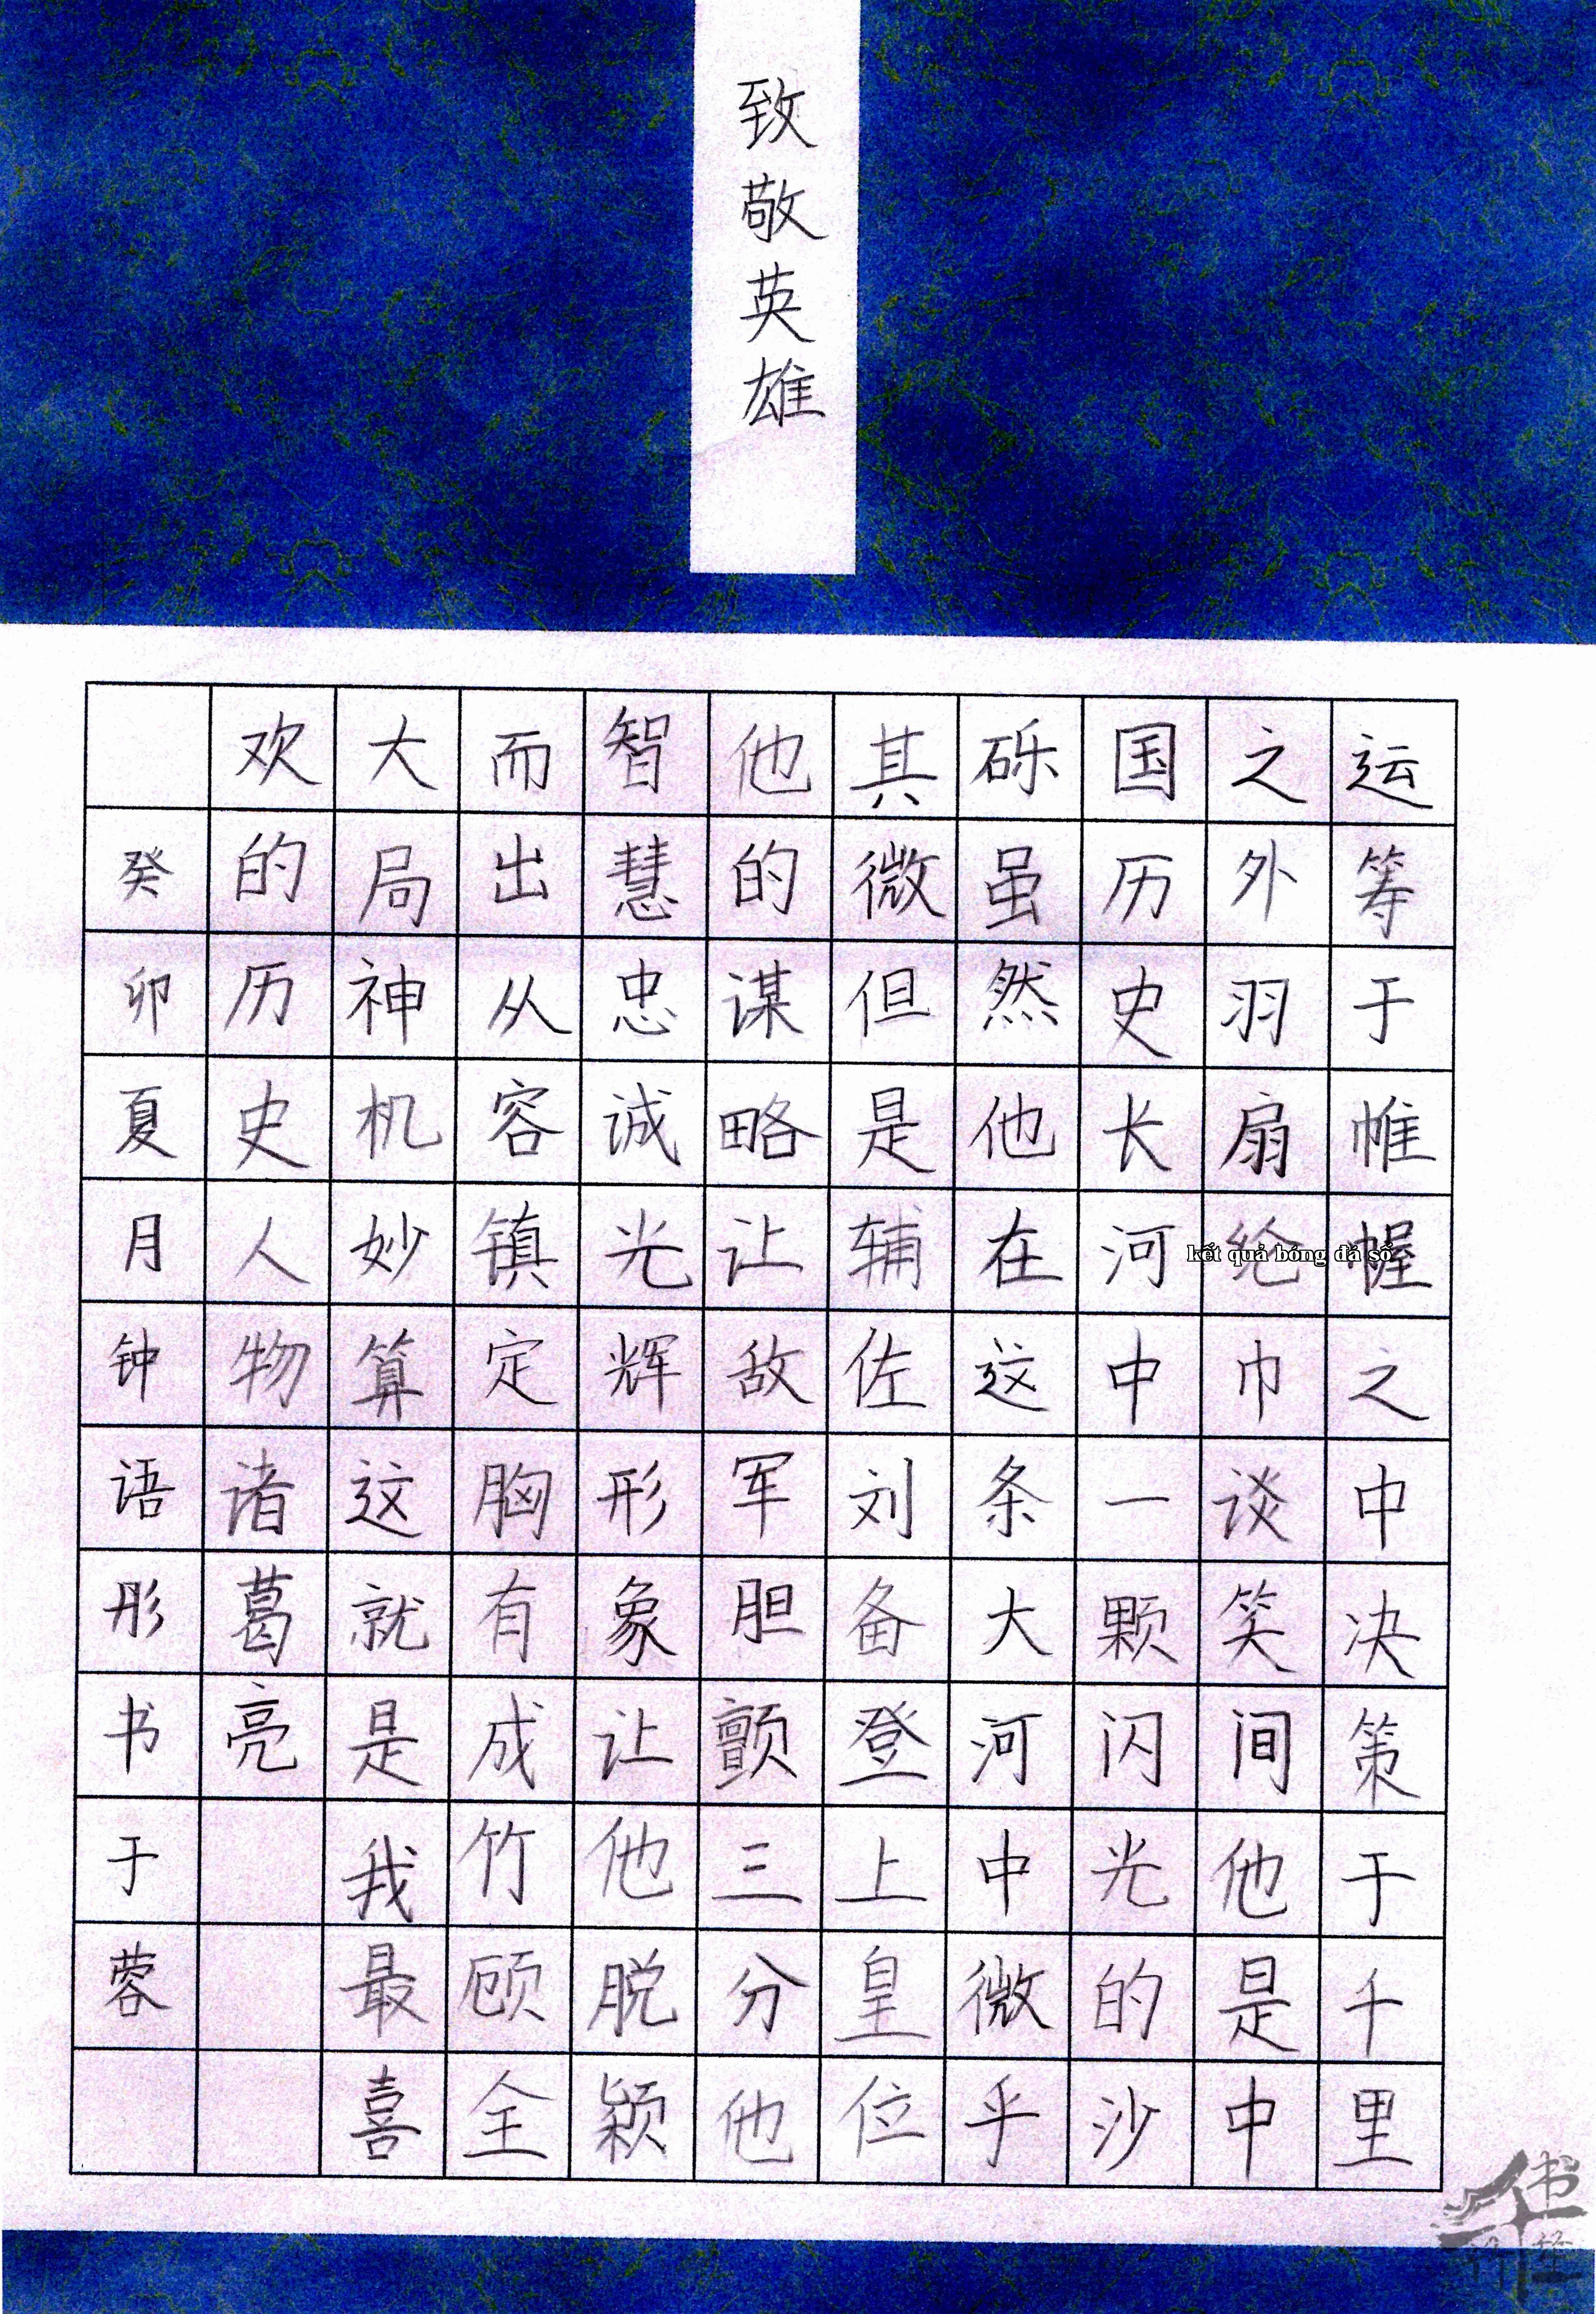 致敬英雄
运筹于帷幄之中决策于千里
之外羽扇纶巾谈笑间他是中
国历史长河中一颗闪光的沙
砾虽然他在这条大河中微乎
其微但是辅佐刘备登上皇位
他的谋略让敌军胆颤三分他
智慧忠诚光辉形象让他脱颖
而出从容镇定胸有成竹顾全
大局神机妙算这就是我最喜
欢的历史人物诸葛亮
癸卯夏月钟语彤书于蓉
kết quả bóng đá số